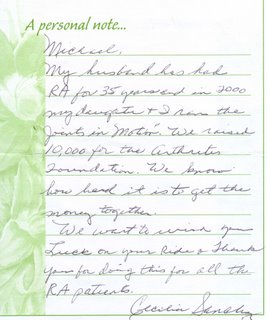 A personal note...
Michael,
My husband has had
RA for 35 years and in 2000
my daughter & I ran the
Joints in Motion". We raised
10,000 for the Arthritis
Foundation. We know
how hard it is to get the
money together.
We want to wish you
Luck on your Ride & Thank
you for doing this for all the
RA patients.
Cecilia